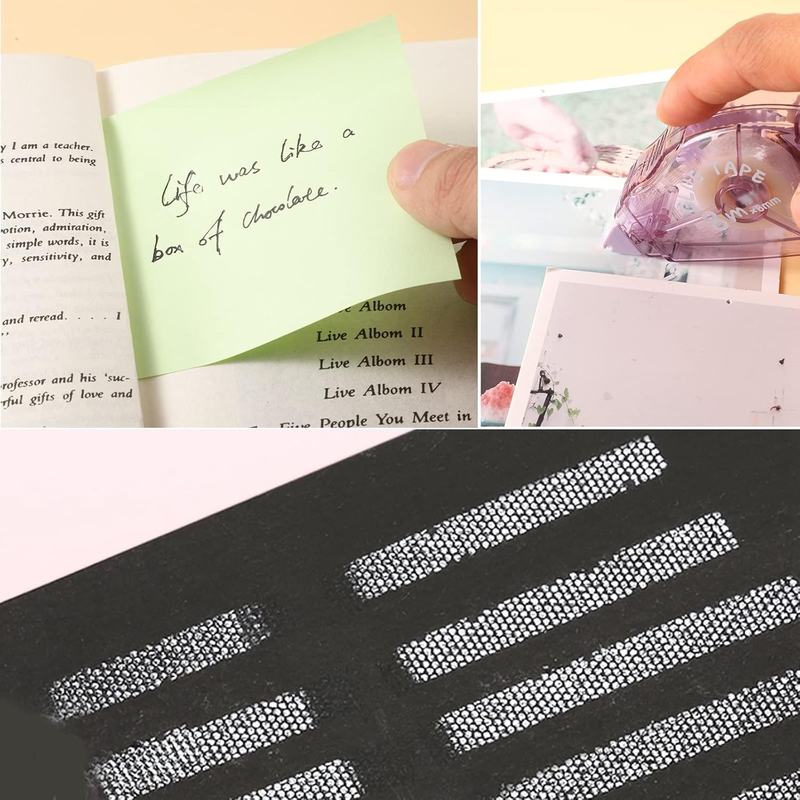 y I am a teacher.
s central to being
Morrie. This gift
otion, admiration,
simple words, it is
y, sensitivity, and
and reread. . . . I
,,
rofessor and his ‘suc-
rful gifts of love and
Life was like a
box of chocolate.
Live Albom
Live Albom II
Live Albom III
Live Albom IV
Five People You Meet in
TAPE
x8mm